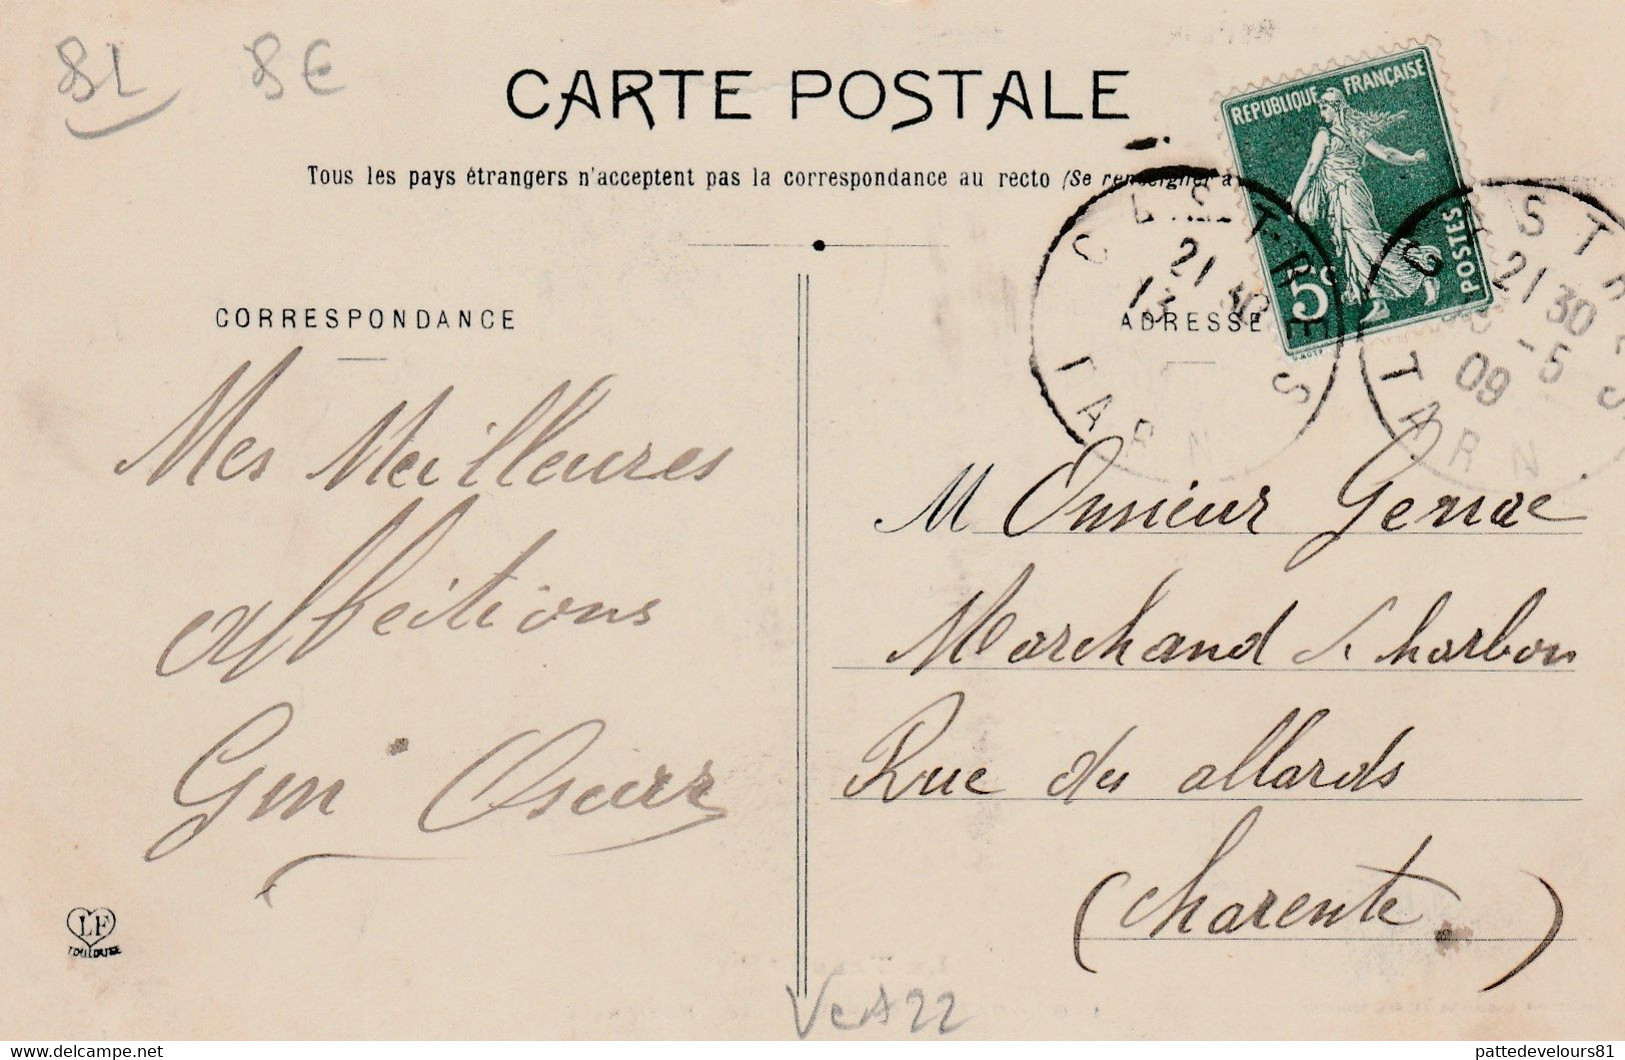 81 8E
CARTE POSTALE
Tous les pays étrangers n'acceptent pas la correspondance au recto (Se renseigner à
REPUBLIQUE FRANÇAISE
POSTES
5c
CASTRES
21 30
13
TARN
CASTRES
21 30
-5
09
TARN
CORRESPONDANCE
ADRESSE
Mes Meilleures
Affections
Oscar
Monsieur
Marchand charbon
Rue des allards
(Charente.)
LF
TOULOUSE
VcA22
pattedevelours81